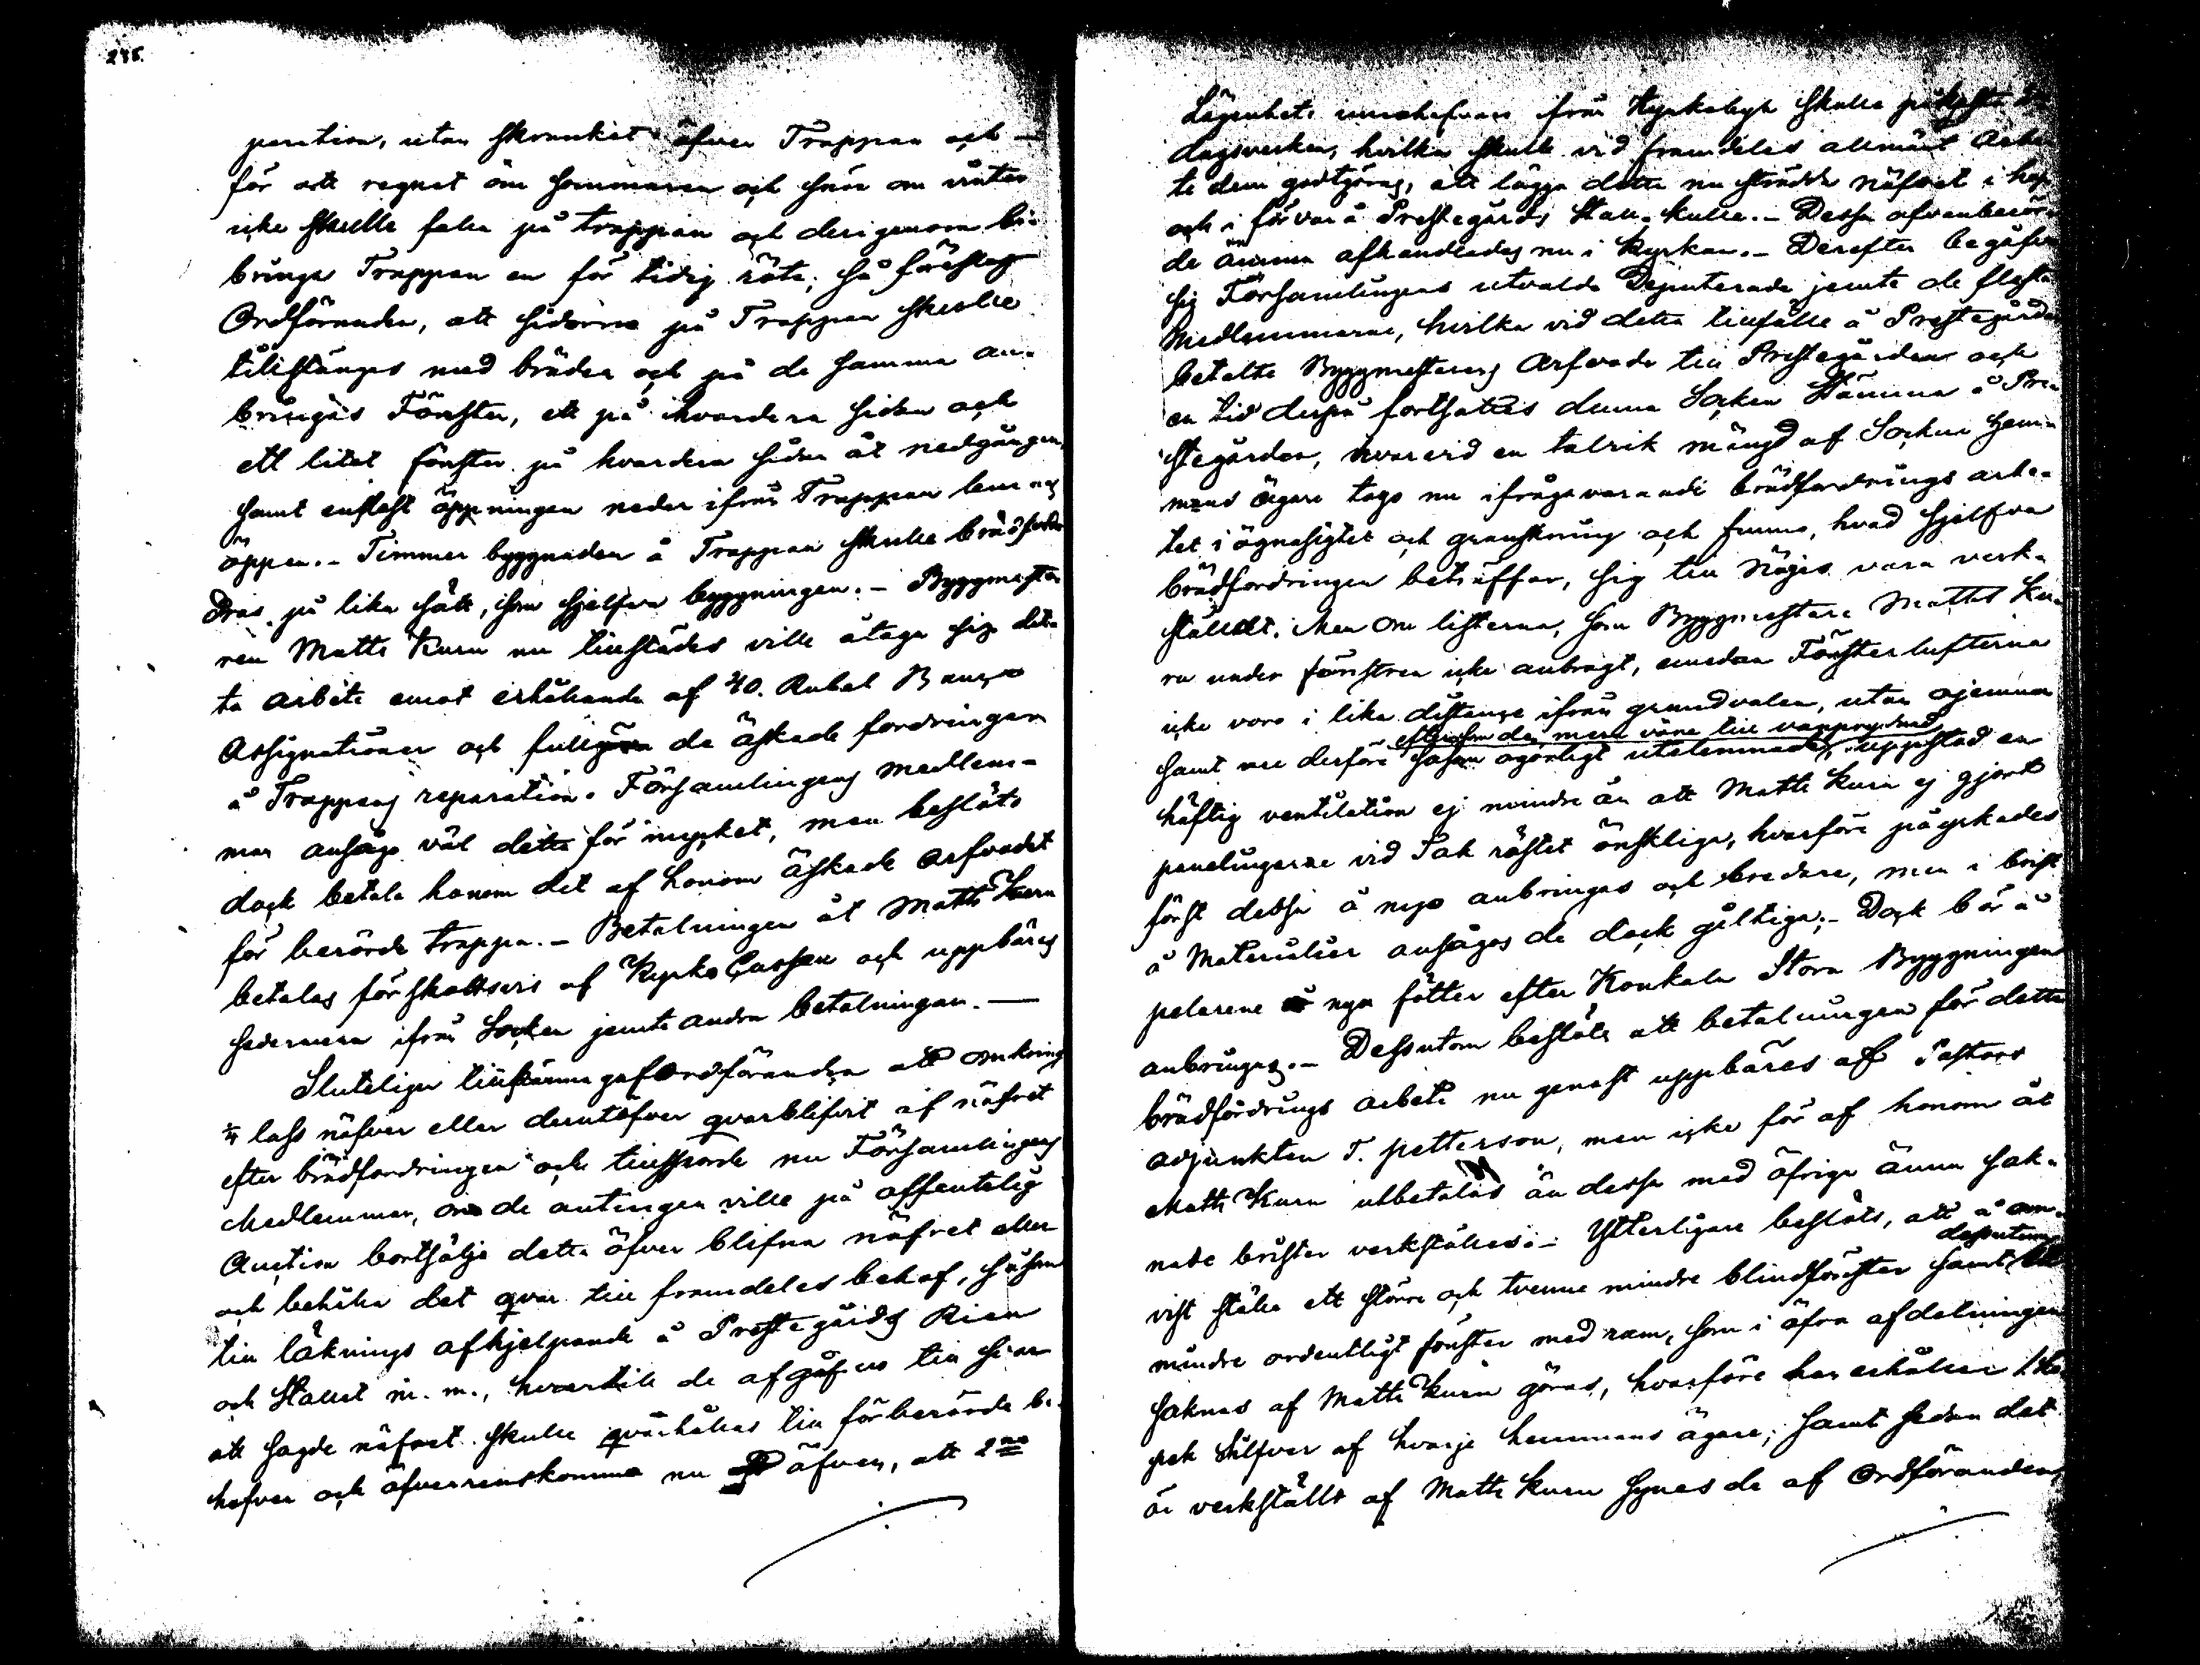 235.
paration, utan skrankit öfver Trappan och –
för att regnet om sommaren och snön om vinter
icke skulle falla på trappan och derigenom bi-
bringa Trappan en för tidig röta; så föreslog
Ordföranden, att sidorna på Trappan skulle
tillstänges med bräder och på de samma an-
bringas Fönster, ett på hvardera sidan och
ett litet fönster på hvardera sidan åt nedgången,
samt endast öppningen neder ifrån Trappan lemnas
öppen. – Timmer byggnaden å Trappan skulle brädfod-
dras på lika sätt, som sjelfva byggningen. – Byggmästa-
ren Matts Kuru nu tillstädes ville åtaga sig det-
ta arbete emot erhållande af 40. Rubel Banco
Assignationer och fullgöra de äskade fordringar
å Trappans reparation. Församlingens medlem-
mar ansågo väl detta för mycket, men beslöts
dock betala honom det af honom äskade arfvodet
för berörde trappa. – Betalningen åt Matts Kuru
betalas förskottsvis af Kyrko Cassan och uppbäres
sedermera ifrån Socken jemte andra betalningar. —
Sluteligen tillkännagaf Ordföranden att omkring
¼ lass näfver eller derutöfver qvarblifvit af näfret
efter brädfordringen och tillsporde nu Församlingens
Medlemmar, om de antingen ville på offentelig
Auction bortsälja detta öfver blifna näfret eller
och behålla det qvar till framdeles behof, såsom
till läknings afhjelpande å Prestegårds Rian
och Stallet m. m., hvartill de afgåfvo till svar
att sagde näfret skulle qvarhållas till förberörde be-
hofver och öfverrenskommo nu äfven, att 2ne
Lägenhets innehafvare från Kyrkobyn skulle påkosta
dagsverken, hvilka skulle vid framdeles allmänt Arbe-
te dem godtgöras, att lägga detta nu strödda näfret i hop
och i förvar å Prestegårds Stall-kulle. – Dessa ofvanberör-
de ämnen afhandlades nu i Kyrkan. – Derefter begåfvo
sig Församlingens utvalda Deputerade jemte de flesta
Medlemmarne, hvilka vid detta tillfälle å Prestegården
betalte Byggmästarens Arfvode till Prestegården och
en tid derpå fortsattes denna Socken Stämma å Pre-
stegården, hvarvid en talrik mängd af Socknens Hem-
mans ägare togo nu ifrågavarande brädfordrings arbe-
tet i ögnasigtet och granskning och funno, hvad sjelfva
brädfordringen beträffar, sig till nöjes vara verk-
stäldt. Men om listerna, som Byggmestare Matts Ku-
ru under fönstren icke anbragt, emedan Fönsterlufterna
icke voro i lika distance ifrån grundvalen, utan ojemna
eftersom de mera väne till vanprydnad
samt nu derföre såsom ogörligt utelemnades, uppstod en
häftig ventilation ej mindre än att Matts Kuru ej gjordt
panelingarne vid Tak röstet önskliga, hvarföre påyrkades
först dessa å nyo anbringas och bredare, men i brist
å Materialier ansågos de dock giltiga; – Dock bör å
pelarene nya fötter efter Konkala Stora Byggningen
anbringas. – Dessutom beslöts att betalningen för detta
brädfordrings arbete nu genast uppbäres af Pastors
adjunkten T. petterson, men icke för af honom åt
Matts Kuru utbetalas än dessa med öfriga ännu sak-
nade brister verkställes. – Ytterligare beslöts, att å om-
vist ställa ett större och tvenne mindre blindfönster samt
dessutom
mindre ordentligt fönster med ram, som i öfra afdelningen
saknas af Matts Kuru göras, hvarföre han erhåller 1
pek Silfver af hvarje hemmans ägare; samt sedan det
är verkställt af Matts Kuru synes de af Ordföranden,